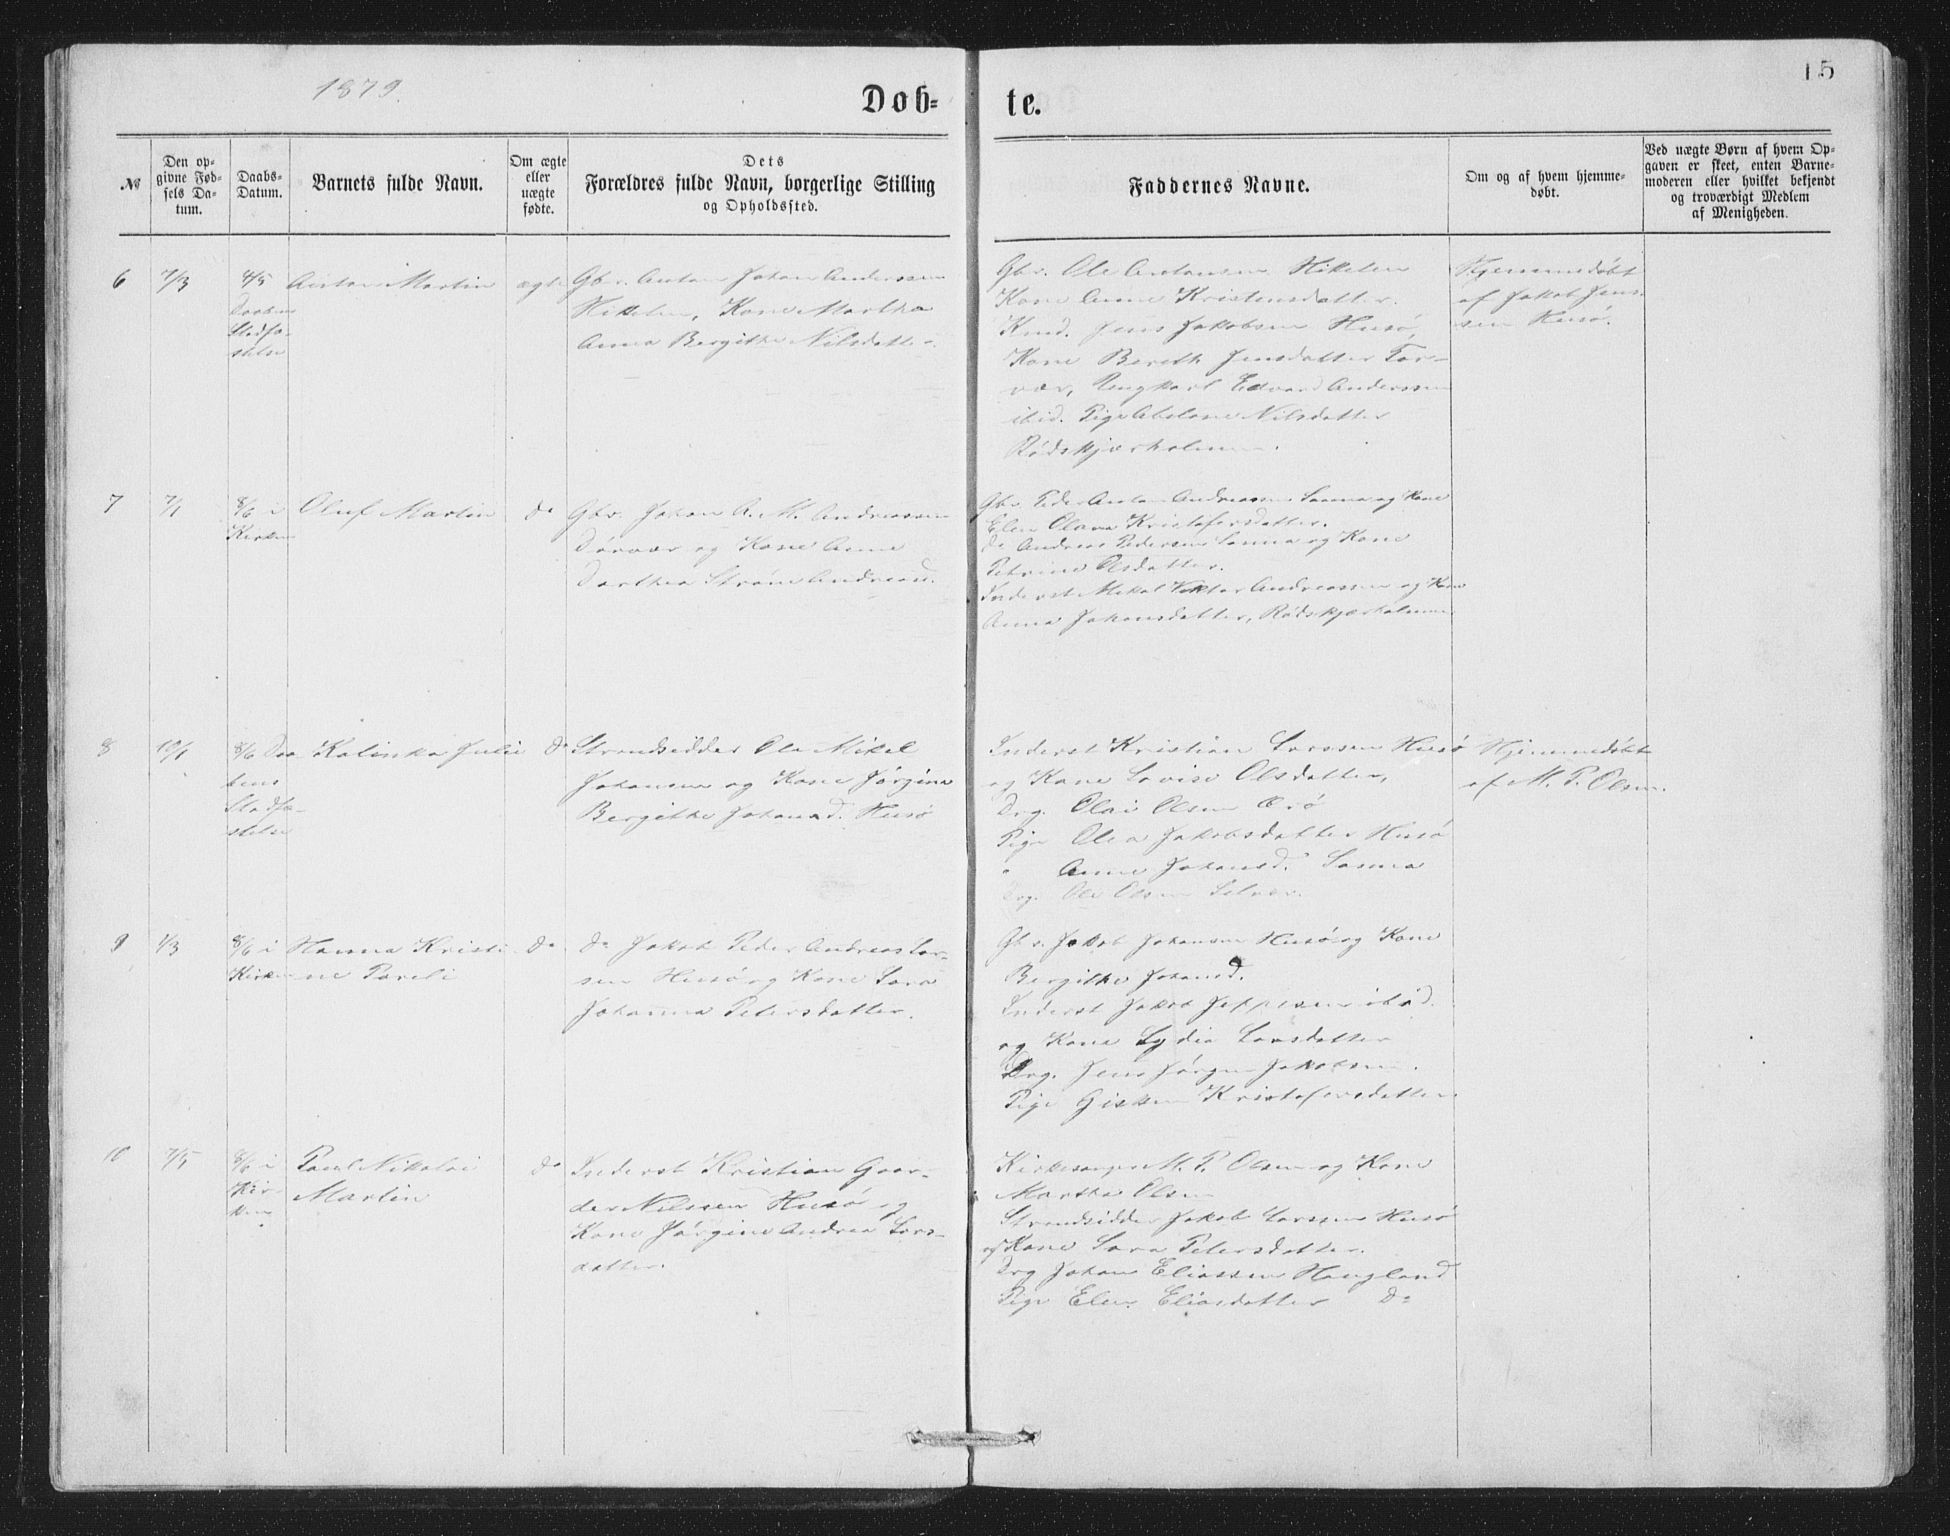 1879.
Døb-
te.
15
№
Den op-
givne Fød-
sels Da-
tum.
Daabs-
Datum.
Barnets fulde Navn.
Om ægte
eller
uægte
fødte.
Dets
Forældres fulde Navn, borgerlige Stilling
og Opholdssted.
Faddernes Navne.
Om og af hvem hjemme-
døbt.
Ved uægte Børn af hvem Op-
gaven er skeet, enten Barne-
moderen eller hvilket bekjendt
og troværdigt Medlem
af Menigheden.
6
7/3
4/5
Daabens
Stadfæ-
stelse
Anton Martin
ægte
Gbr. Anton Johan Anderssen
Hikelen, Kone Martha
Anna Bergithe Nilsdatter.
Gbr. Ole Antonsen Hikelen
Kone Anne Kristensdatter.
Kaard. Jens Jakobsen Husø,
Kone Bereth Jensdatter For-
vær, Ungkarl Edvard Anderssen
ibid. Pige Abelone Nilsdatter
Rødskjærholmen.
Hjemmedøbt
af Jakob Jens-
sen Husø.
7
7/1
8/6 i
Kirken
Oluf Martin
do
Gbr. Johan A. M. Andreassen
og Kone Anne
Dorthea Strøm Andreasd.
Gbr. Peder Anton Andreassen Sanna og Kone
Elen Olava Kristofersdatter.
do Andreas Pedersen Sanna og Kone
Petrine Olsdatter.
Inderst Mikal Viktor Andreassen og Kone
Anna Johansdatter, Rødskjærholmen
8
10/1
8/6 Daa-
bens
Stadfæ-
stelse
Kalinka Julie
do
Strandsidder Ole Mikal
Johansen og Kone Jørgine
Bergithe Johansd. Husø
Inderst Kristian Larssen Husø
og Kone Lovise Olsdatter,
Drg. Olai Olsen
Pige Olea Jakobsdatter Husø
" Anne Johansd. Sanna
Drg. Ole Olsen Selvær.
Hjemmedøbt
af M. P. Olsen.
9
1/3
8/6 i
Kirken
Hanna Kristi-
ne Pareli
do
do Jakob Peder Andreas Lar-
sen Husø og Kone Sara
Johanna Petersdatter.
Gbr. Jakob Johansen Husø og Kone
Bergithe Johansd.
Inderst Jakob Jeppesen ibid.
og Kone Lydia Larsdatter
Drg. Jens Jørgen Jakobsen.
Pige Gisken Kristofersdatter.
10
7/5
8/6 i
Kir-
ken
Paul Nikolai
Martin
do
Inderst Kristian Gaar-
der Nilssen Husø og
Kone Jørgine Andrea Lars-
datter.
Kirkesanger M. P. Olsen og Kone
Martha Olsen
Strandsidder Jakob Larssen Husø
og Kone Sara Petersdatter.
Drg Johan Eliassen Haugland
Pige Elen Eliasdatter do